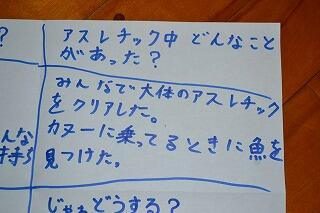 ?
アスレチック中 どんなこと
があった?
みんなで大体のアスレチック
をクリアした。
カヌーに乗ってるときに魚を
見つけた。
んな
持ち
じゃあどうする?